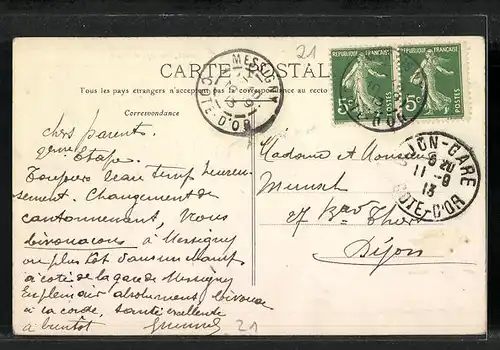 21
CARTE POSTALE
Tous les pays étrangers n'acceptent pas la correspondance au recto
Correspondance
MESSIGNY
CÔTE-D'OR
REPUBLIQUE FRANÇAISE
REPUBLIQUE FRANÇAISE
5c POSTES
5c POSTES
DIJON-GARE
11-9
13
CÔTE-D'OR
Chers parents.
2ème Etape
Toujours beau temp heureu-
sement. Changement de
cantonnement, Nous
bivouacons à Messigny
ou plus tôt dans un champ
a coté de la gare de Messigny
En plein air absolument bivouac
à la corde, santé excellente
à bientôt
Madame et Monsieur
Munsch
27
Dijon
21